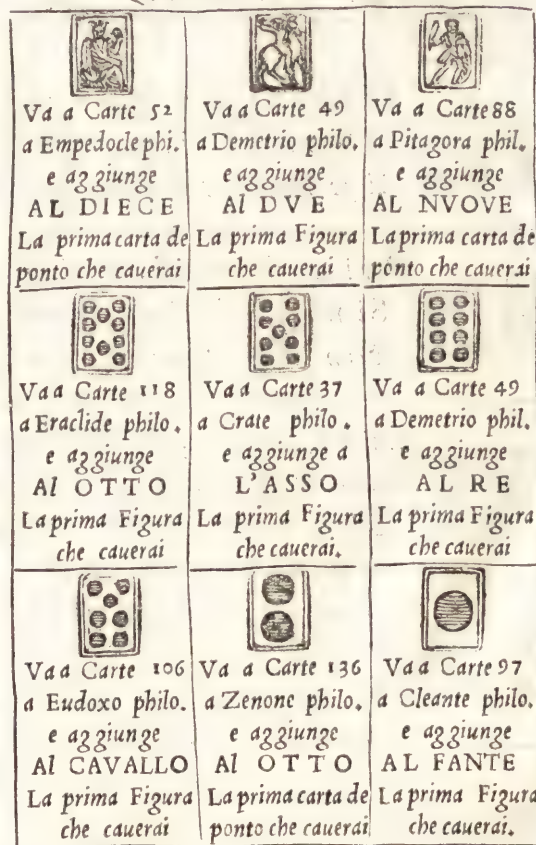 Va a Carte 52
a Empedocle phi.
e aggiunge
AL DIECE
La prima carta de
ponto che cauerai
Va a Carte 49
a Demetrio philo.
e aggiunge
Al DVE
La prima Figura
che cauerai
Va a Carte 88
a Pitagora phil.
e aggiunge
AL NVOVE
La prima carta de
ponto che cauerai
Va a Carte 118
a Eraclide philo.
e aggiunge
Al OTTO
La prima Figura
che cauerai
Va a Carte 37
a Crate philo.
e aggiunge a
L'ASSO
La prima Figura
che cauerai.
Va a Carte 49
a Demetrio phil.
e aggiunge
AL RE
La prima Figura
che cauerai
Va a Carte 106
a Eudoxo philo.
e aggiunge
Al CAVALLO
La prima Figura
che cauerai
Va a Carte 136
a Zenone philo.
e aggiunge
Al OTTO
La prima carta de
ponto che cauerai
Va a Carte 97
a Cleante philo.
e aggiunge
AL FANTE
La prima Figura
che cauerai.